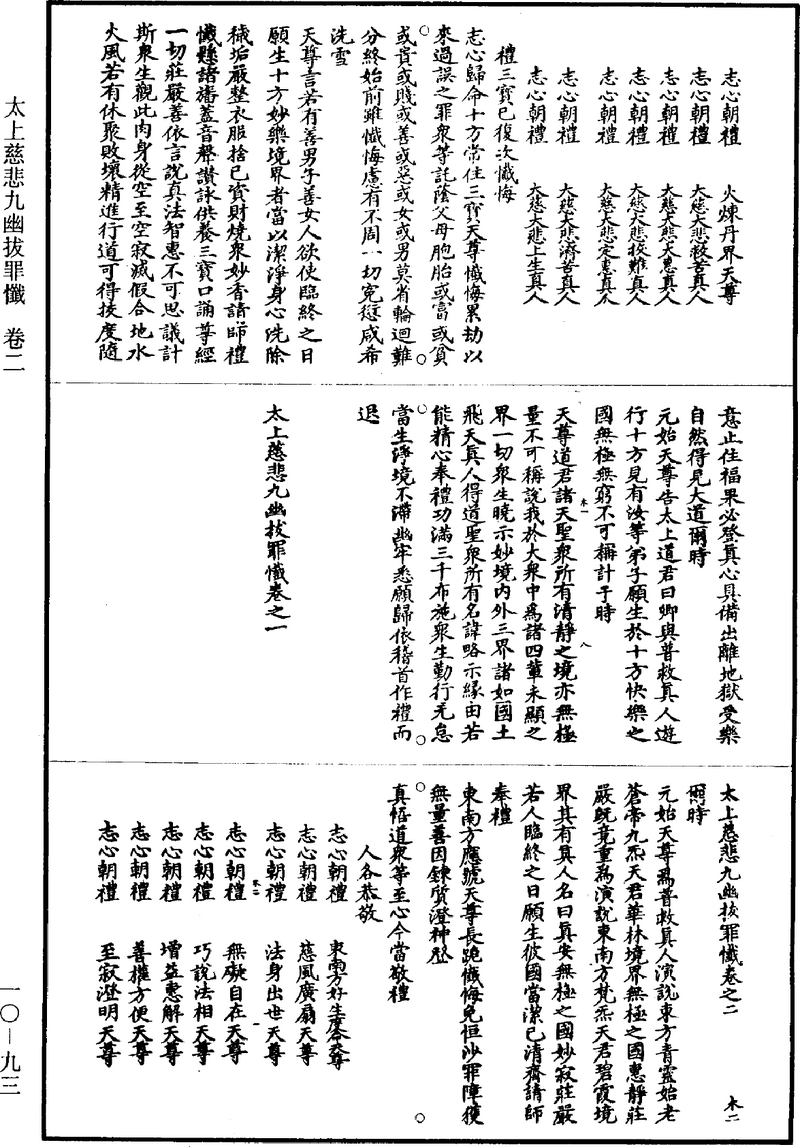 太上慈悲九幽拔罪懺 卷二
一〇—九三
志心朝禮 火煉丹界天尊
志心朝禮 大慈大悲救苦真人
志心朝禮 大慈大悲大惠真人
志心朝禮 大慈大悲救難真人
志心朝禮 大慈大悲定惠真人
志心朝禮 大慈大悲濟苦真人
志心朝禮 大慈大悲上生真人
禮三寶已復次懺悔
志心歸命十方常住三寶天尊懺悔累劫以
來過誤之罪衆等託蔭父母胞胎或富或貧
或貴或賤或善或惡或女或男莫省輪迴難
分終始前雖懺悔慮有不周一切寃愆咸希
洗雪
天尊言若有善男子善女人欲使臨終之日
願生十方妙樂境界者當以潔淨身心洗除
穢垢嚴整衣服捨已資財燒衆妙香請師禮
懺懸諸旛蓋音聲讚詠供養三寶口誦尊經
一切莊嚴善依言說真法智惠不可思議計
斯衆生觀此肉身從空至空寂滅假合地水
火風若有休聚敗壞精進行道可得拔度隨
意止住福果必登真心具備出離地獄受樂
自然得見大道爾時
元始天尊告太上道君曰卿與普救真人遊
行十方見有汝等弟子願生於十方快樂之
國無極無窮不可稱計于時
天尊道君諸天聖衆所有清靜之境亦無極
量不可稱說我於大衆中爲諸四輩未顯之
界一切衆生曉示妙境內外三界諸如國土
飛天真人得道聖衆所有名諱略示緣由若
能精心奉禮功滿三千布施衆生勤行无怠
當生淨境不滯幽牢悉願歸依稽首作禮而
退
太上慈悲九幽拔罪懺卷之一
太上慈悲九幽拔罪懺卷之二 木二
爾時
元始天尊爲普救真人演說東方青靈始老
蒼帝九炁天君華林境界無極之國惠靜莊
嚴既竟重爲演說東南方梵炁天君碧霞境
界其有真人名曰真安無極之國妙寂莊嚴
若人臨終之日願生彼國當潔已清齋請師
奉禮
東南方應號天尊長跪懺悔免恒沙罪障獲
無量善因鍊質澄神登
真悟道衆等至心今當敬禮
人各恭敬
志心朝禮 東南方好生度命天尊
志心朝禮 慈風廣扇天尊
志心朝禮 法身出世天尊
志心朝禮 無礙自在天尊
志心朝禮 巧說法相天尊
志心朝禮 增益惠解天尊
志心朝禮 善權方便天尊
志心朝禮 至寂澄明天尊